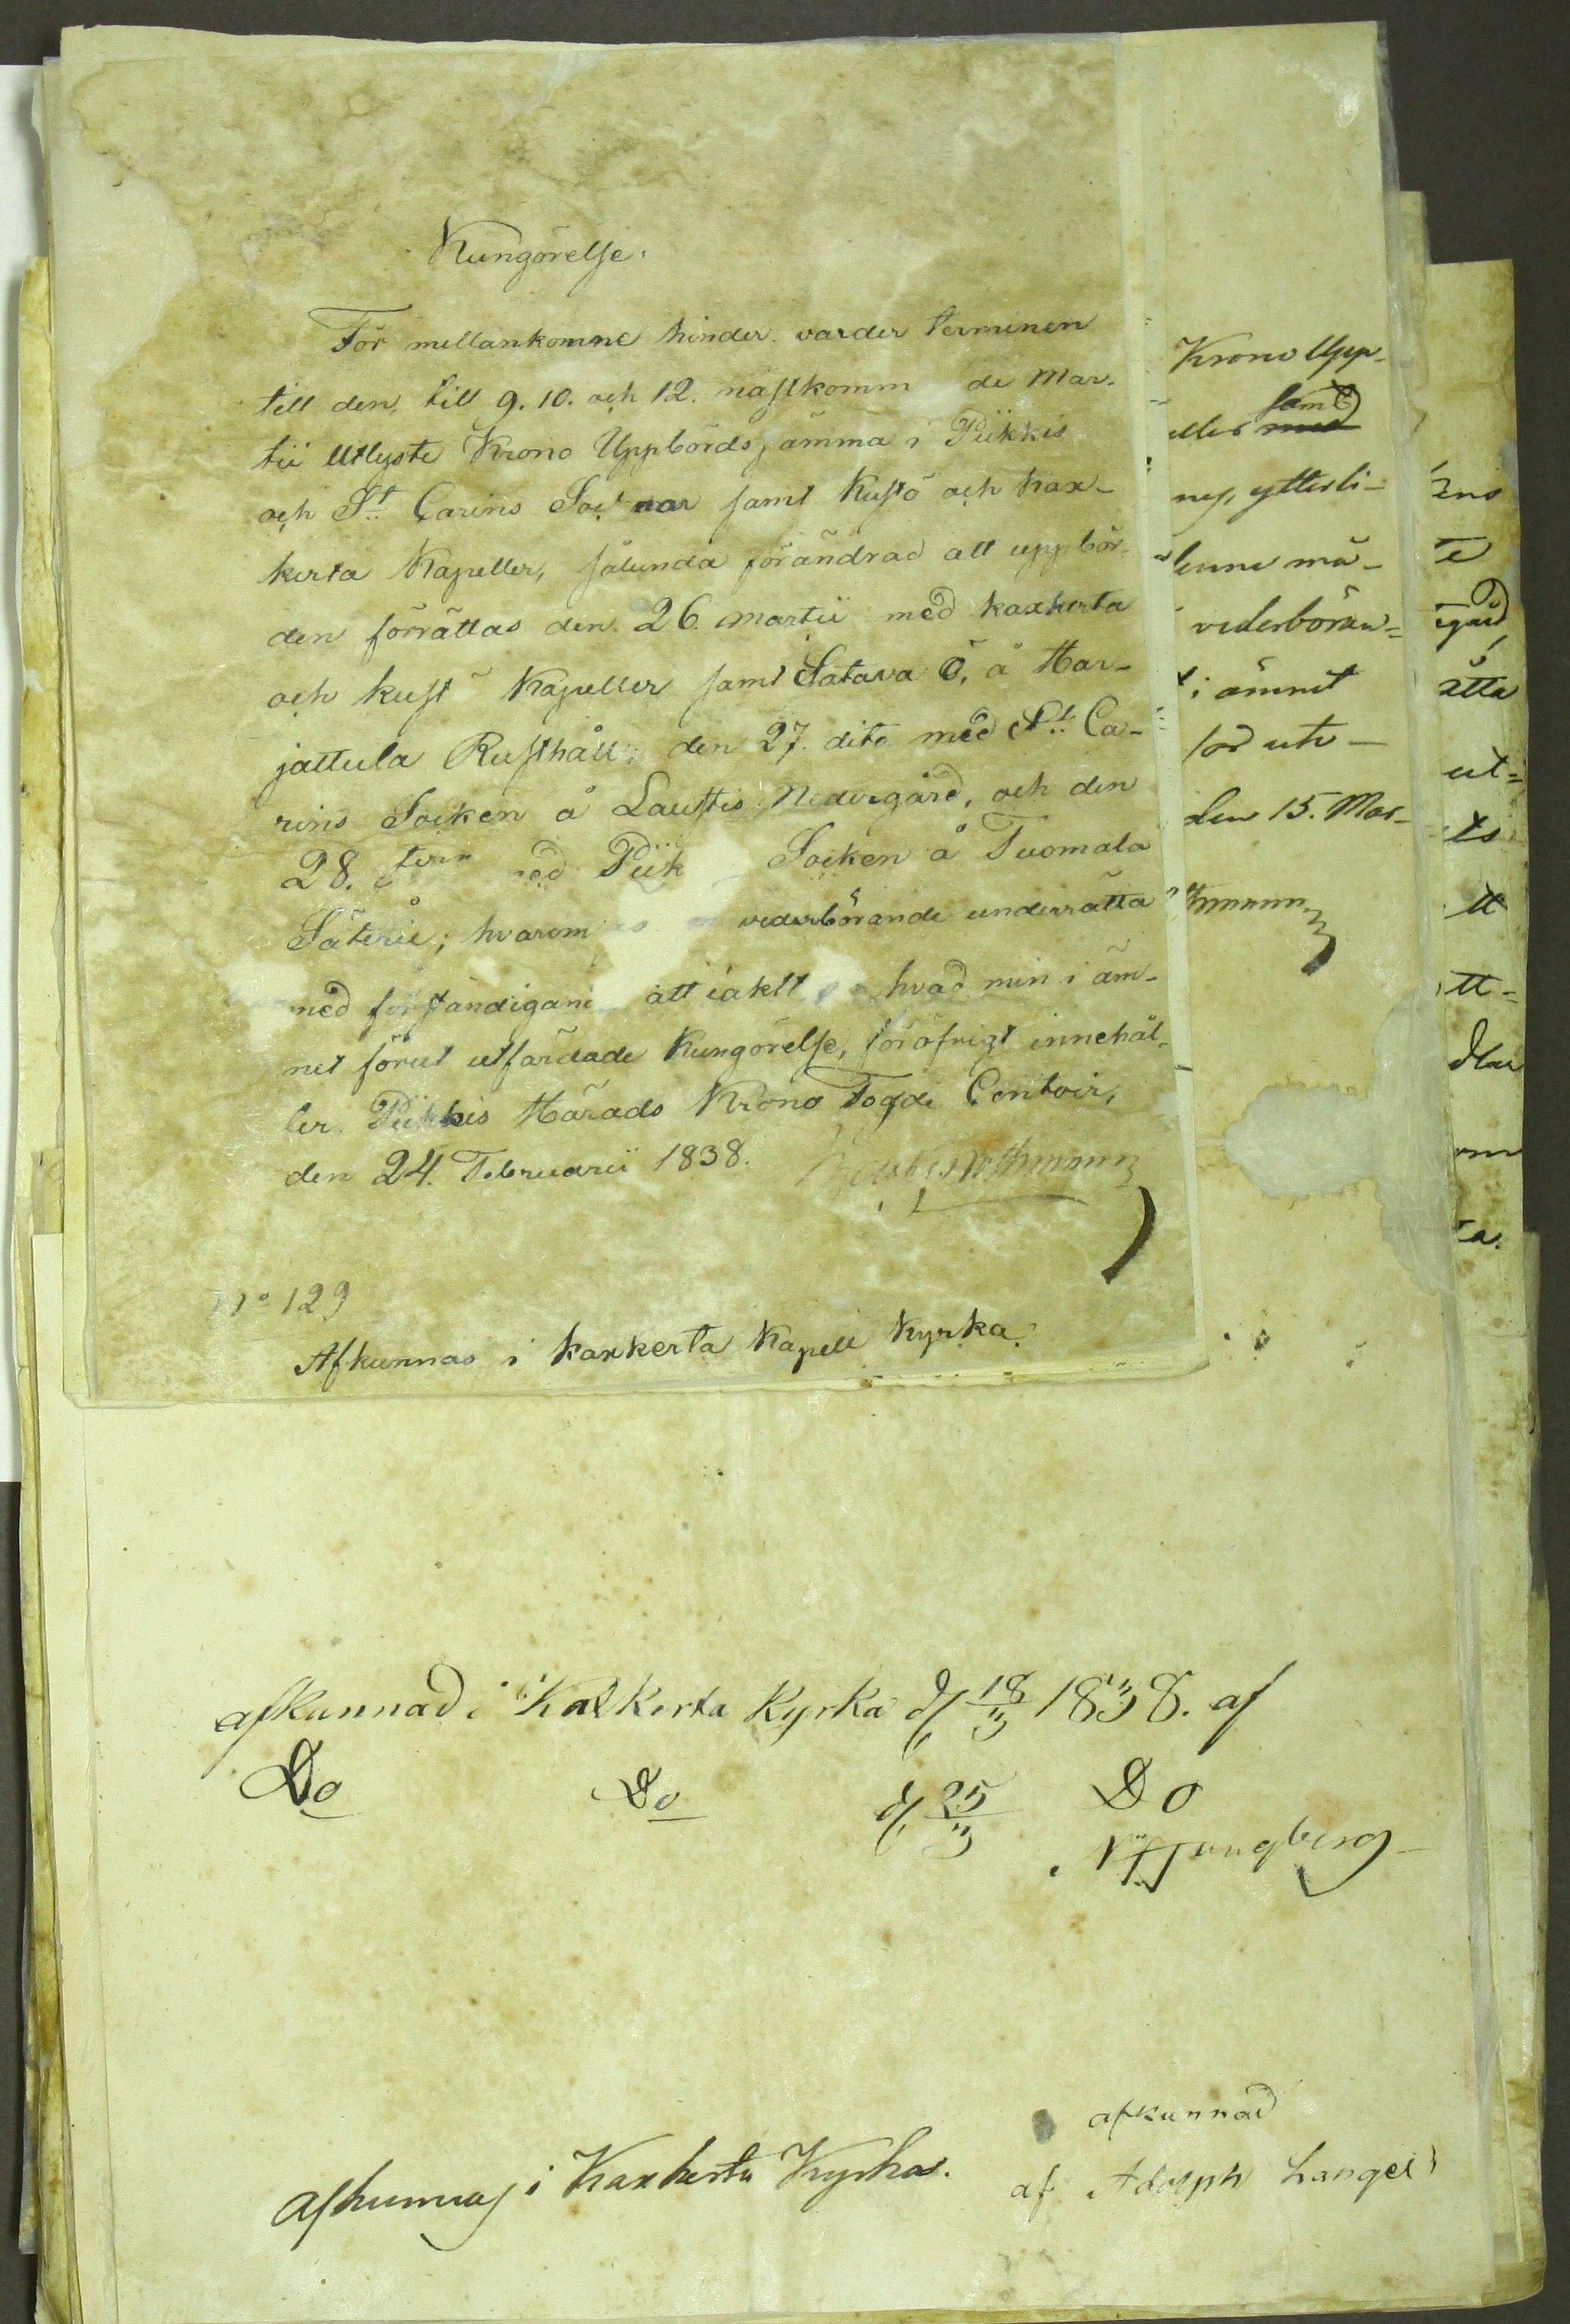 Kungörelse.
För mellankomne hinder varder terminen
till den, till 9. 10. och 12. nästkomm de Mar-
tii Utlyste Krono Uppbördsjämma i Piikkis
och St Carins Soc nar samt Kustö och Kax-
kerta Kapeller, sålunda förändrad att uppbör-
den förrättas den 26. Martii med Kaxkerta
och Kust Kapeller samt Satava Ö, å Har-
jattula Rusthåll; den 27. dito med St Ca-
rins Socken å Laustis Nedergård, och den
28. ed Piik Socken å Tuomala
Säterie; hvarom vederbörande underrätta
med för ständigand att iaktt hvad min i äm-
net förut utfärdade Kungörelse, föröfrigt innehål-
ler. Piikkis Härads Krono Fogde Contoir,
den 24. Februarii 1838.
No 129
Afkunnas i Kaxkerta Kapell Kyrka.
Krono Upp-
samt
eller med
ytterli-
denne må-
vederböran-
i ämnet
den 15. Mar-
ens
te
egård
åtta
ut-
ts
tt
tt-
ta.
afkunnad i Kaxkerta Kyrka d 18/3 1838. af
Do Do d 25/3 Do
Ljungberg
Afkunnas i Kaxkerta Kyrka.
afkunnad
af Adolph Langel